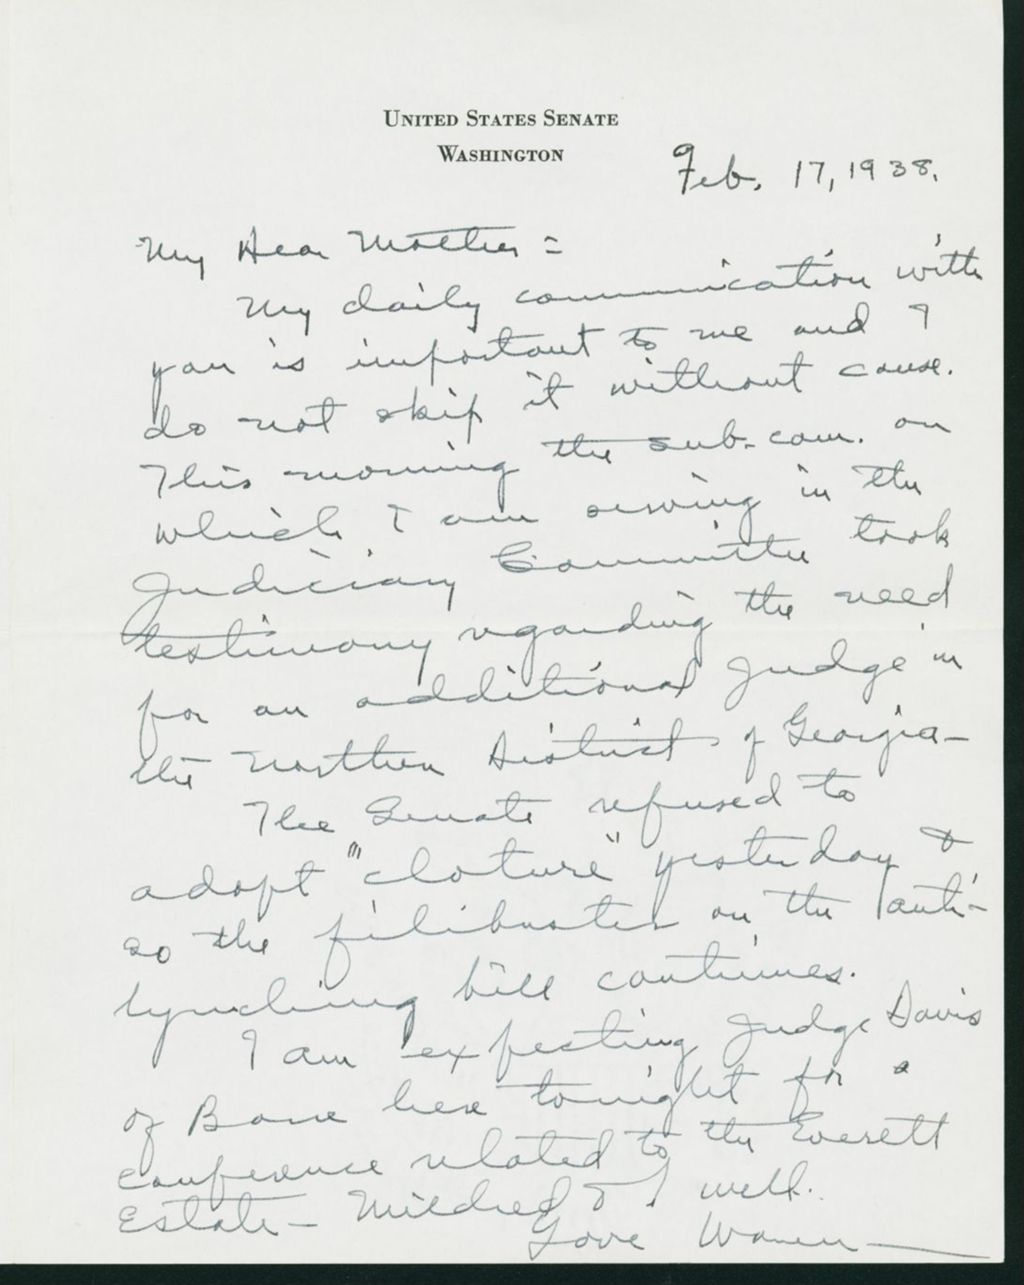 UNITED STATES SENATE
WASHINGTON
Feb. 17, 1938.
My Dear Mother =
My daily communication with
you is important to me and I
do not skip it without cause.
This morning the sub-com. on
which I am serving in the
Judiciary Committee took
testimony regarding the need
for an additional judge in
the Northern District of Georgia—
The Senate refused to
adopt "cloture" yesterday &
so the filibuster on the anti-
lynching bill continues.
I am expecting Judge Davis
of Bane here tonight for a
conference related to the Everett
Estate— Mildred & I well.
Love Warren—